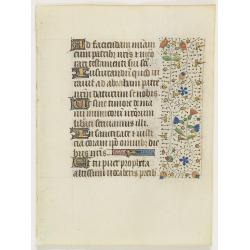 Ad faciendam miãm
cum patribȝ nr̃is ⁊ mẽo
rari testamenti sui sc̃i
Iusiurandũ quod iu
rauit ad abraham patrẽ
nr̃m daturum se nobis
Ut sine timore de ma
nu inimicorũ nr̃orum
liberati seruiamus illi
In sanctitate ⁊ iusti
cia coram ip̃o omnibȝ die
bus nr̃is
Et tu puer propheta
altissimi vocaberis preib